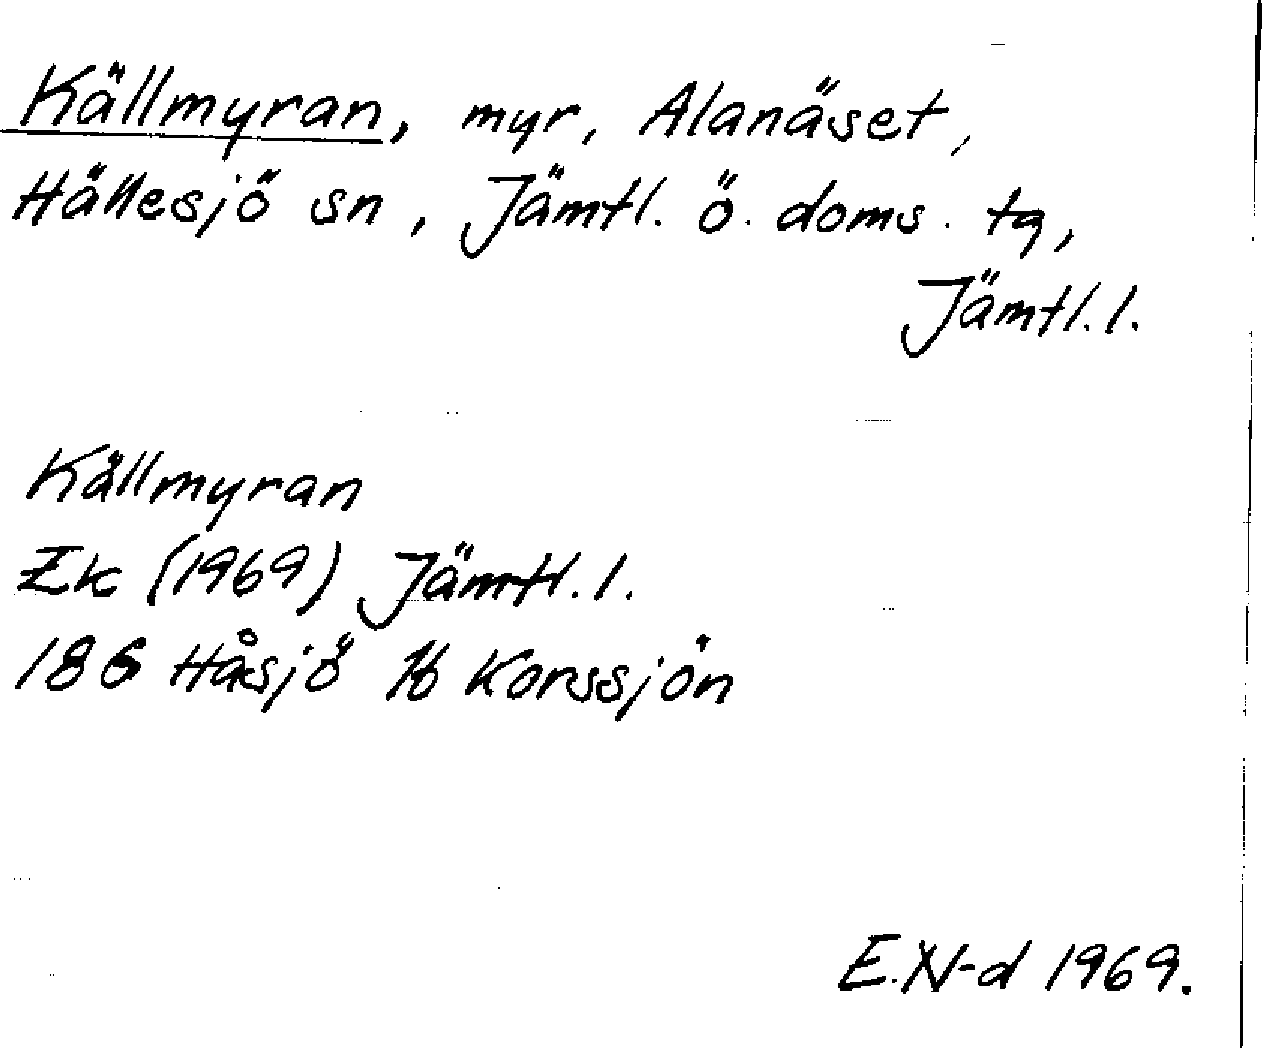 Källmyran, myr, Alanäset,
Hällesjö sn, Jämtl. ö. doms. tg,
Jämtl. l.
Källmyran
Ek (1969) Jämtl. l.
186 Håsjö 16 Korssjön
E.N-d 1969.